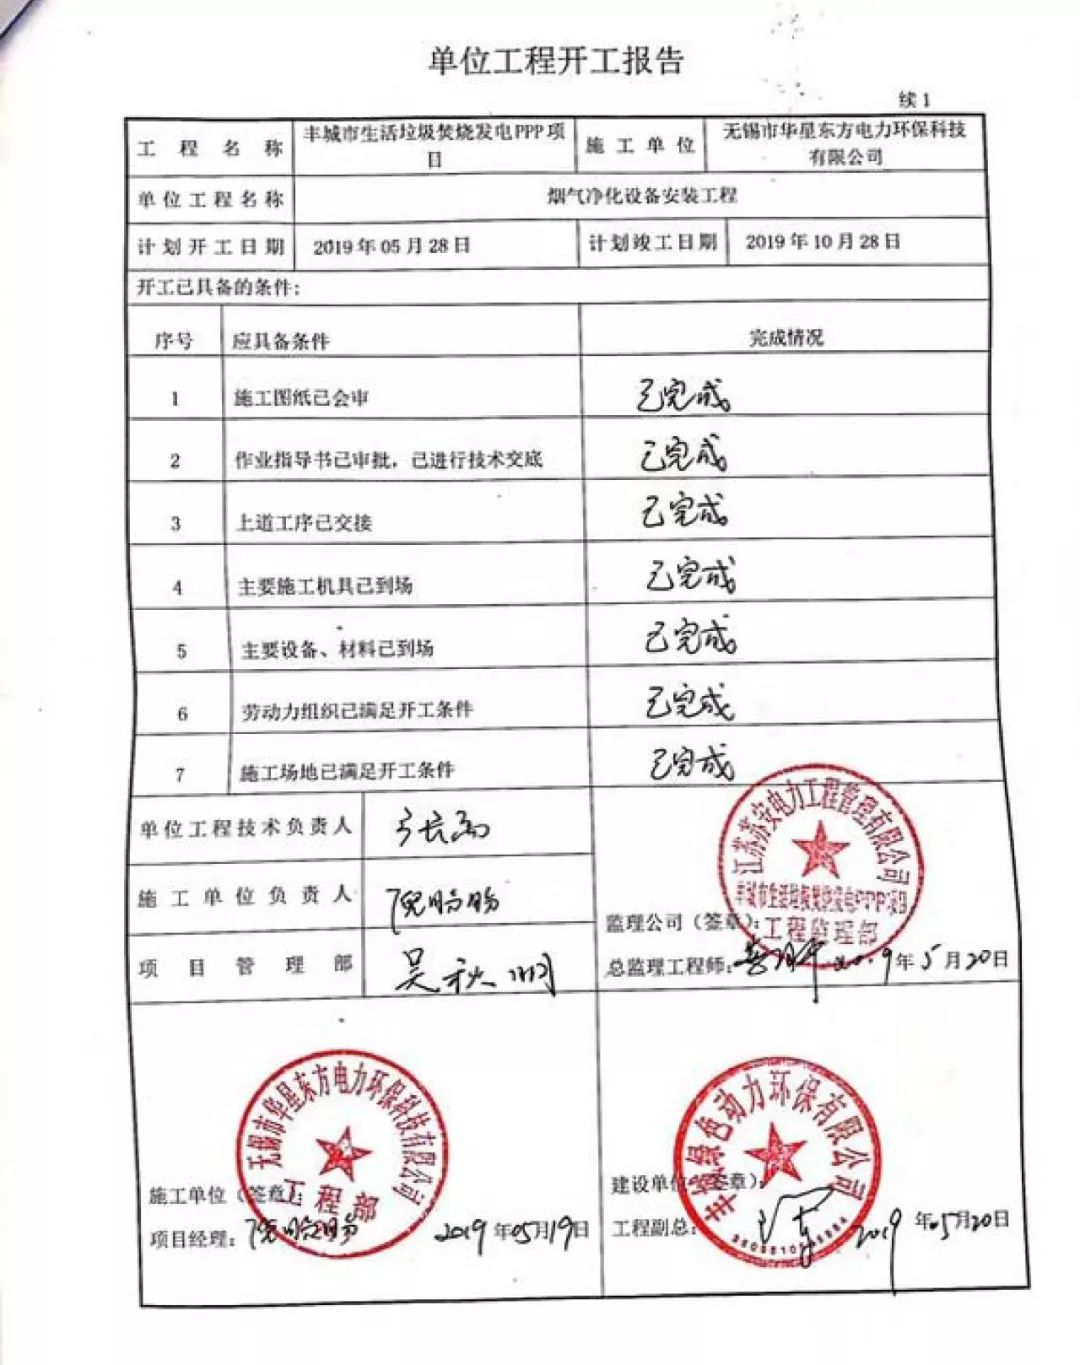 单位工程开工报告
续1
工程名称
丰城市生活垃圾焚烧发电PPP项
目
施工单位
无锡市华星东方电力环保科技
有限公司
单位工程名称
烟气净化设备安装工程
计划开工日期
2019年05月28日
计划竣工日期
2019年10月28日
开工已具备的条件:
序号
应具备条件
完成情况
1
施工图纸已会审
已完成
2
作业指导书已审批，已进行技术交底
已完成
3
上道工序已交接
已完成
4
主要施工机具已到场
已完成
5
主要设备、材料已到场
已完成
6
劳动力组织已满足开工条件
已完成
7
施工场地已满足开工条件
已完成
单位工程技术负责人
施工单位负责人
项目管理部
吴秋明
江苏苏安电力工程管理有限公司
丰城市生活垃圾焚烧发电PPP项目
工程监理部
监理公司（签章）:
总监理工程师:
2019年5月20日
无锡市华星东方电力环保科技有限公司
工程部
施工单位（签章）:
项目经理:
2019年05月19日
丰城绿色动力环保有限公司
建设单位（签章）:
工程副总:
2019年05月20日